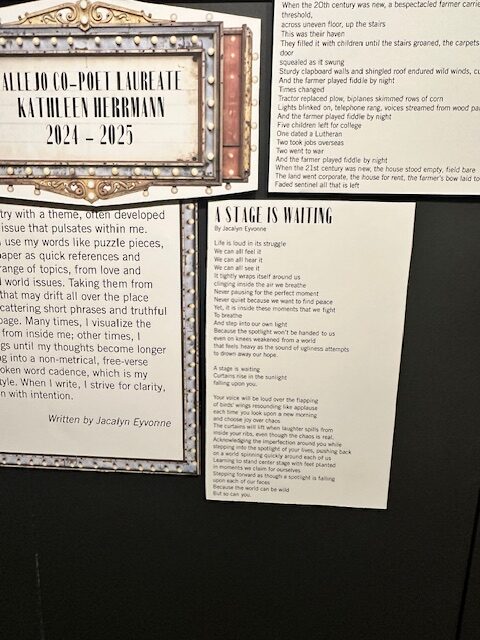 ALLEJO CO-POET LAUREATE
KATHLEEN HERRMANN
2024 – 2025
When the 20th century was new, a bespectacled farmer carrie
threshold,
across uneven floor, up the stairs
This was their haven
They filled it with children until the stairs groaned, the carpets
door
squealed as it swung
Sturdy clapboard walls and shingled roof endured wild winds, cu
And the farmer played fiddle by night
Times changed
Tractor replaced plow, biplanes skimmed rows of corn
Lights blinked on, telephone rang, voices streamed from wood pa
And the farmer played fiddle by night
Five children left for college
One dated a Lutheran
Two took jobs overseas
Two went to war
And the farmer played fiddle by night
When the 21st century was new, the house stood empty, field bare
The land went corporate, the house for rent, the farmer's bow laid to
Faded sentinel all that is left
try with a theme, often developed
issue that pulsates within me.
use my words like puzzle pieces,
paper as quick references and
range of topics, from love and
d world issues. Taking them from
that may drift all over the place
cattering short phrases and truthful
page. Many times, I visualize the
from inside me; other times, I
gs until my thoughts become longer
g into a non-metrical, free-verse
oken word cadence, which is my
tyle. When I write, I strive for clarity,
n with intention.
Written by Jacalyn Eyvonne
A STAGE IS WAITING
By Jacalyn Eyvonne
Life is loud in its struggle
We can all feel it
We can all hear it
We can all see it
It tightly wraps itself around us
clinging inside the air we breathe
Never pausing for the perfect moment
Never quiet because we want to find peace
Yet, it is inside these moments that we fight
To breathe
And step into our own light
Because the spotlight won't be handed to us
even on knees weakened from a world
that feels heavy as the sound of ugliness attempts
to drown away our hope.
A stage is waiting
Curtains rise in the sunlight
falling upon you.
Your voice will be loud over the flapping
of birds' wings resounding like applause
each time you look upon a new morning
and choose joy over chaos
The curtains will lift when laughter spills from
inside your ribs, even though the chaos is real.
Acknowledging the imperfection around you while
stepping into the spotlight of your lives, pushing back
on a world spinning quickly around each of us
Learning to stand center stage with feet planted
in moments we claim for ourselves
Stepping forward as though a spotlight is falling
upon each of our faces
Because the world can be wild
But so can you.